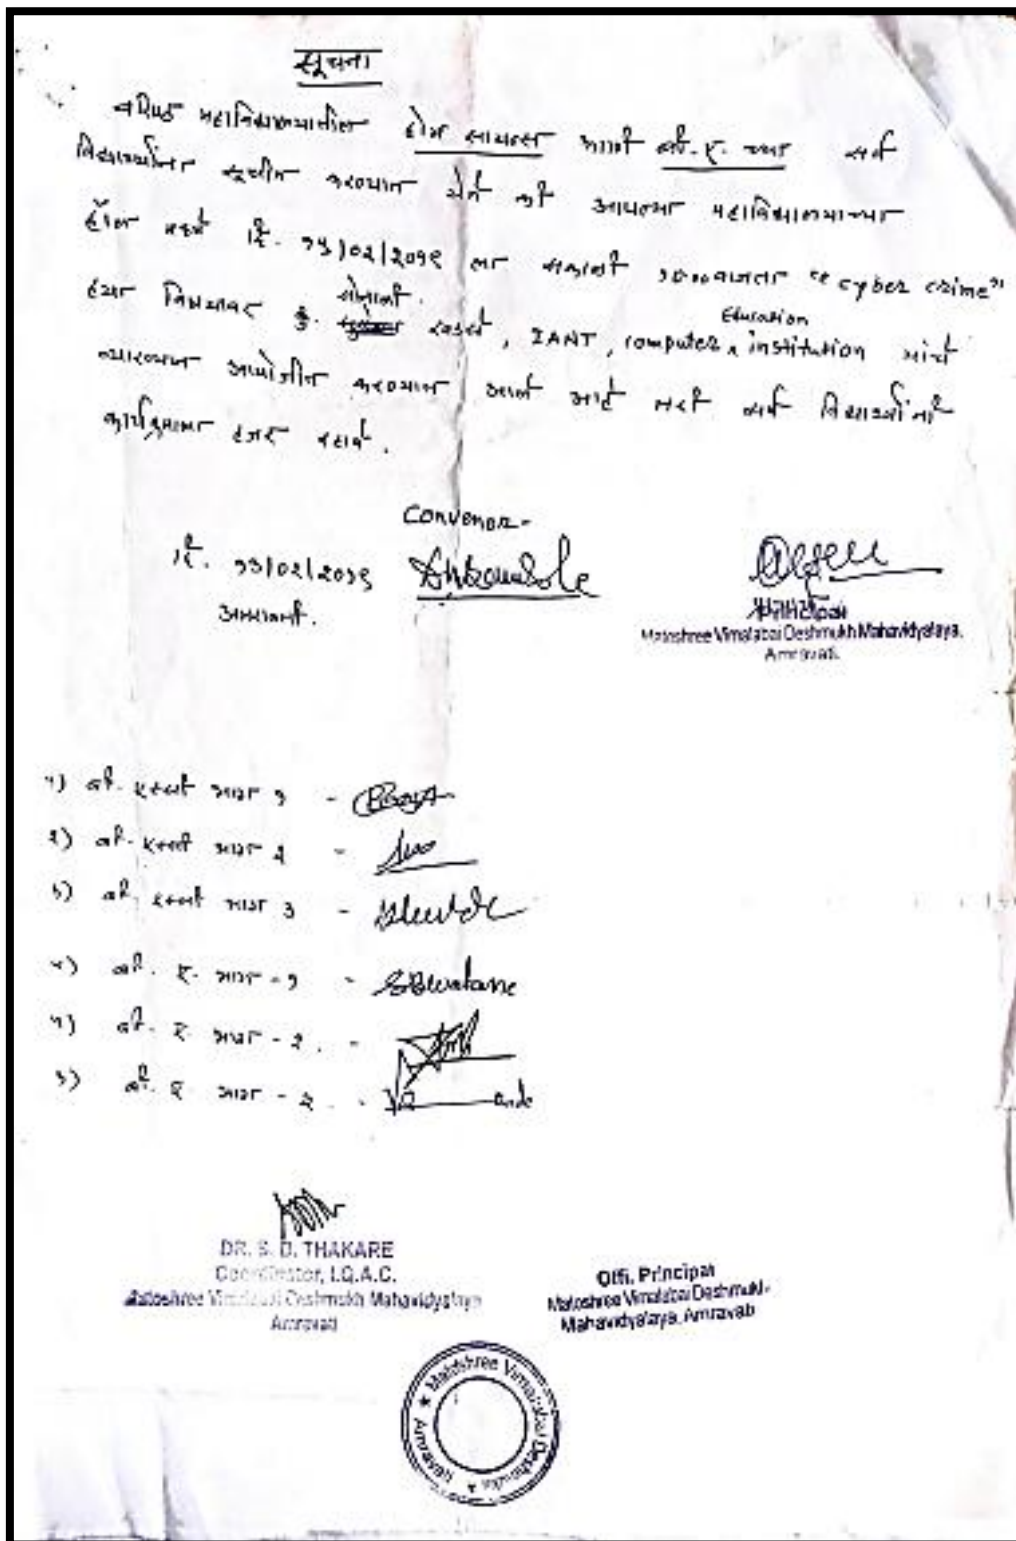 सूचना
वरिष्ठ महाविद्यालयातील होम सायन्स आणि बी. ए. च्या सर्व
विद्यार्थ्यांना सूचीत करण्यात येते की आपल्या महाविद्यालयाच्या
हॉल मध्ये दि. १५/०२/२०१९ ला सकाळी "cyber crime"
ह्या विषयावर कु. सोनाली, IANT, computer Education institution यांचे
व्याख्यान आयोजीत करण्यात आले आहे तरी सर्व विद्यार्थ्यांनी
कार्यक्रमाला हजर रहावे.
Convenor-
दि. १३/०२/२०१९
अमरावती.
Principal
Matoshree Vimalabai Deshmukh Mahavidyalaya,
Amravati.
१) बी. एस्सी भाग १ -
२) बी. एस्सी भाग २ -
३) बी. एस्सी भाग ३ -
४) बी. ए. भाग - १ -
५) बी. ए. भाग - २. -
३) बी. ए. भाग - २. -
DR. S. D. THAKARE
Coordinator, I.Q.A.C.
Matoshree Vimalabai Deshmukh Mahavidyalaya
Amravati
Offi. Principal
Matoshree Vimalabai Deshmukh
Mahavidyalaya, Amravati
★ Matoshree Vimalabai Deshmukh ★ Amravati